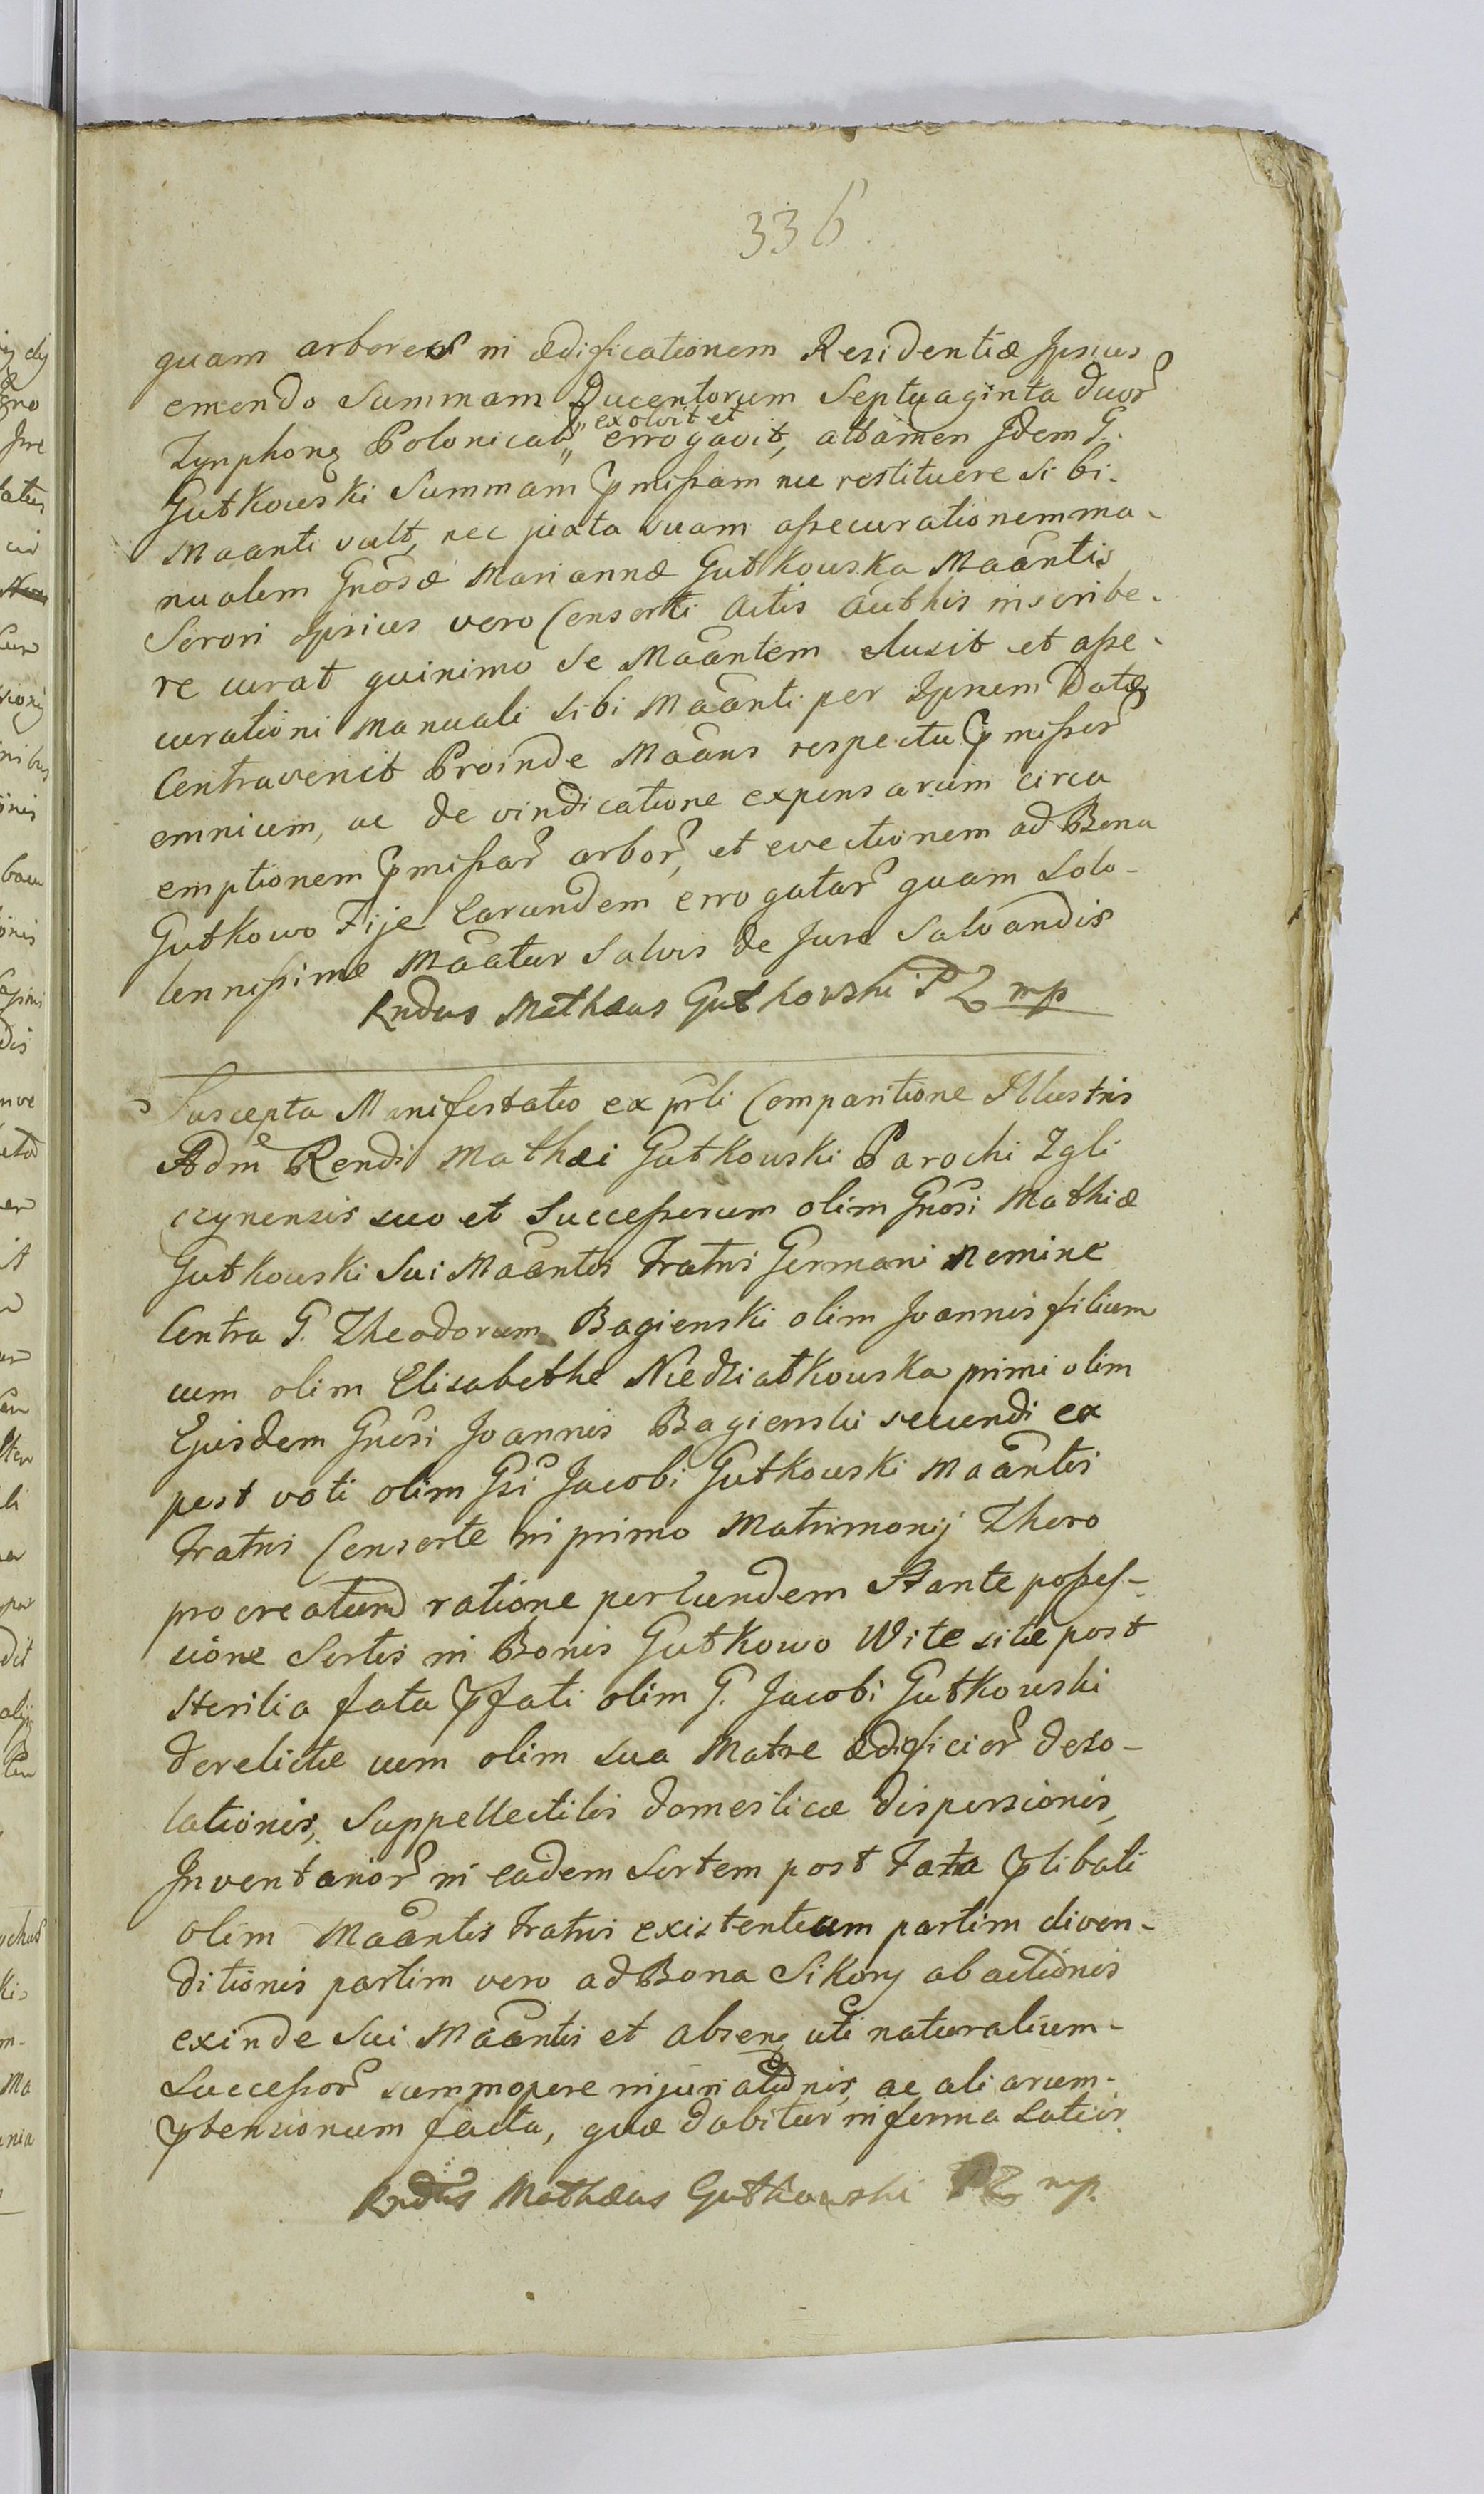 336.
quam arbores in ædificationem Residentiæ Ipsius
emendo Summam Ducentorum Septuaginta duor
Tynphonz Polonical „exolvit et„ errogavit, attamen Idem G.
Gutkowski Summam pmissam nec restituere sibi
Maanti vult, nec juxta suam assecurationem ma-
nualem Gnosæ Mariannæ Gutkowska Maantis
Sorori Ipsius vero Consorti Actis Authis inscribe-
re curat quinimo se Maantem elusit et asse-
curationi manuali sibi Maanti per Ipsum Datæ
Contravenit Proinde Maans respectu pmissor
omnium, ac de vindicatione expensarum circa
emptionem pmissar arbor, et evectionem ad Bona
Gutkowo Fije Earundem errogatar quam Solo-
lennissime Maatur Salvis de Jure Salvandis
Rndus Mathæus Gutkowski P Z mp
Suscepta Manifestatio ex prli Comparitione Illustris
Adm Rendi Mathæi Gutkowski Parochi Zgli
czynensis suo et Successorum olim Gnosi Mathiæ
Gutkowski Sui Maantis Fratris Germani Nomine
Contra G. Theodorum Bagienski olim Joannis filium
cum olim Elisabethe Niedziatkowska primi olim
Ejusdem Gnosi Joannis Bagienski secundi ex
post voti olim Gsi Jacobi Gutkowski Maantis
Fratris Consorte in primo Matrimonij Thoro
procreatum ratione per Eundem Stante posses-
sione Sortis in Bonis Gutkowo Wite sitæ post
Sterilia fata pfati olim G. Jacobi Gutkowski
derelictæ cum olim sua Matre ædificior deso-
lationis, Suppellectilis domesticæ dispersionis,
Inventarior in eadem Sortem post Fata plibati
olim Maantis Fratris existentium partim diven-
ditionis partim vero ad Bona Sikory abactionis
exinde Sui Maantis et absenz uti naturalium
Successor summopere injuriationis, ac aliarum
ptensionum facta, quæ dabitur in forma Latior
Rndus Mathæus Gutkowski PZ mp.